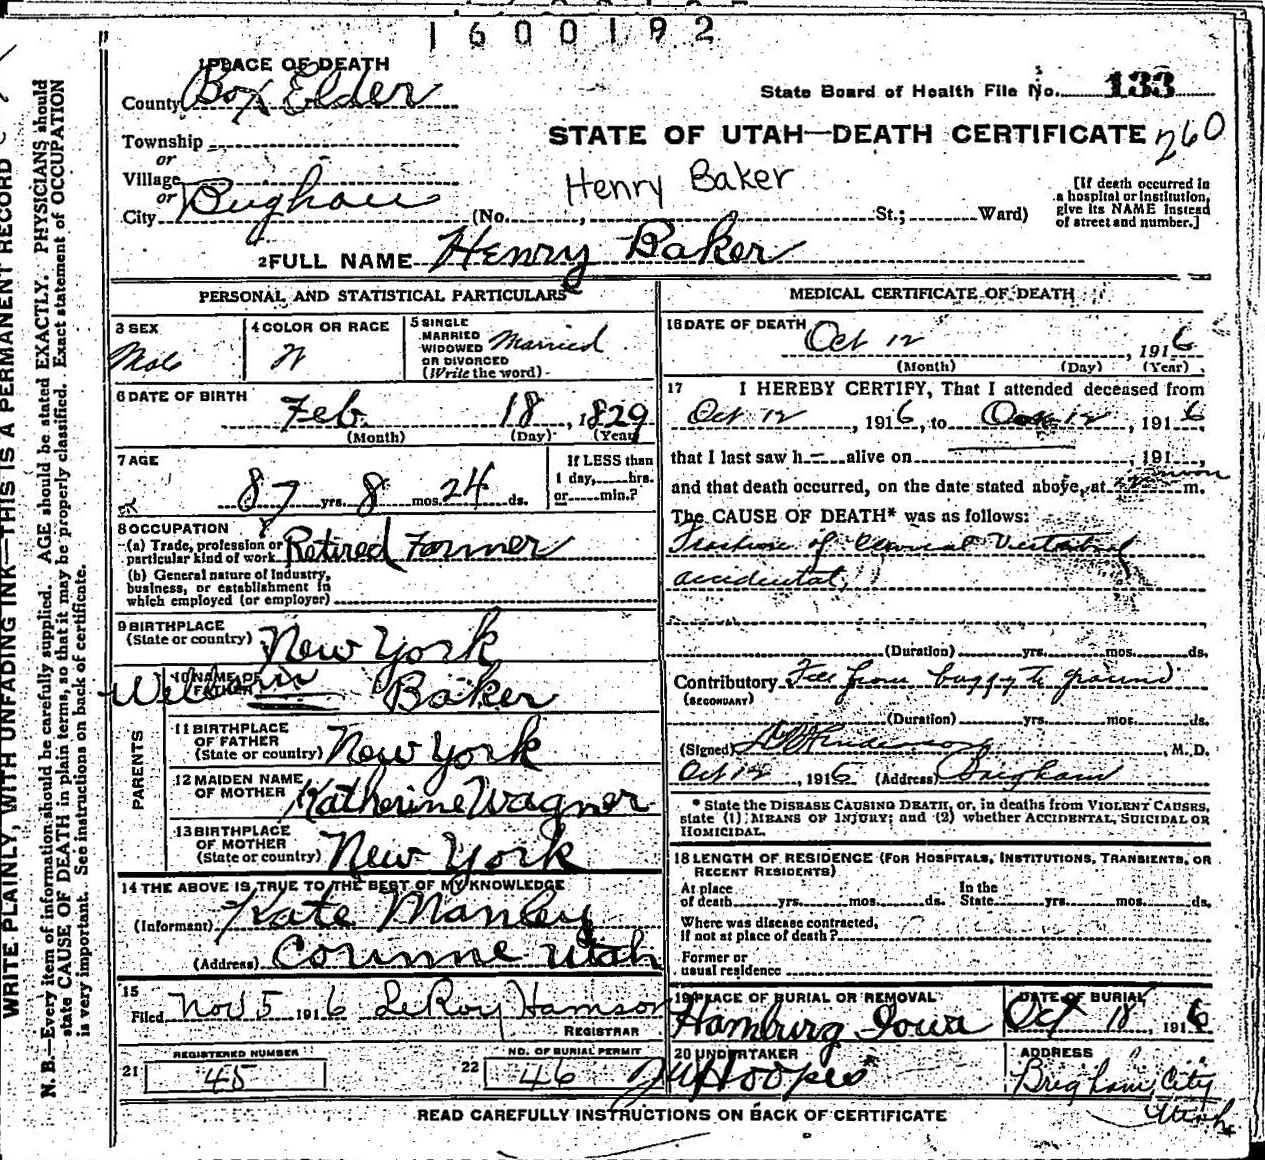 1600192
1 PLACE OF DEATH
County Box Elder
State Board of Health File No. 133
Township
STATE OF UTAH—DEATH CERTIFICATE 260
or
Village
Henry Baker
or
City Brigham (No. , St.; Ward)
[If death occurred in
a hospital or institution,
give its NAME instead
of street and number.]
2 FULL NAME Henry Baker
PERSONAL AND STATISTICAL PARTICULARS
3 SEX
Male
4 COLOR OR RACE
W
5 SINGLE
MARRIED
WIDOWED
OR DIVORCED
(Write the word)
Married
6 DATE OF BIRTH
Feb. 18, 1829
(Month) (Day) (Year)
7 AGE
87 yrs. 8 mos. 24 ds.
If LESS than
1 day, hrs.
or min.?
8 OCCUPATION
(a) Trade, profession or
particular kind of work Retired Farmer
(b) General nature of Industry,
business, or establishment in
which employed (or employer)
9 BIRTHPLACE
(State or country) New York
PARENTS
10 NAME OF
FATHER Baker
11 BIRTHPLACE
OF FATHER
(State or country) New York
12 MAIDEN NAME
OF MOTHER Katherine Wagner
13 BIRTHPLACE
OF MOTHER
(State or country) New York
14 THE ABOVE IS TRUE TO THE BEST OF MY KNOWLEDGE
(Informant) Kate Manley
(Address) Corinne Utah
15
Filed Nov 5 1916 LeRoy Hamson
REGISTRAR
21 REGISTERED NUMBER
45
22 NO. OF BURIAL PERMIT
46
MEDICAL CERTIFICATE OF DEATH
16 DATE OF DEATH
Oct 12, 1916
(Month) (Day) (Year)
17 I HEREBY CERTIFY, That I attended deceased from
Oct 12, 1916, to Oct 12, 1916
that I last saw h— alive on , 191
and that death occurred, on the date stated above, at m.
The CAUSE OF DEATH* was as follows:
of
accidental,
(Duration) yrs. mos. ds.
Contributory Fell from buggy to ground
(SECONDARY)
(Duration) yrs. mos. ds.
(Signed) , M. D.
Oct 12, 1916 (Address) Brigham
* State the DISEASE CAUSING DEATH, or, in deaths from VIOLENT CAUSES,
state (1) MEANS OF INJURY; and (2) whether ACCIDENTAL, SUICIDAL OR
HOMICIDAL.
18 LENGTH OF RESIDENCE (FOR HOSPITALS, INSTITUTIONS, TRANSIENTS, OR
RECENT RESIDENTS)
At place
of death yrs. mos. ds.
In the
State yrs. mos. ds.
Where was disease contracted,
If not at place of death?
Former or
usual residence
19 PLACE OF BURIAL OR REMOVAL
Hamburg Iowa
DATE OF BURIAL
Oct 18, 1916
20 UNDERTAKER
Hoopes
ADDRESS
Brigham City
Utah
READ CAREFULLY INSTRUCTIONS ON BACK OF CERTIFICATE
WRITE PLAINLY, WITH UNFADING INK—THIS IS A PERMANENT RECORD
N. B.—Every item of information should be carefully supplied. AGE should be stated EXACTLY. PHYSICIANS should
state CAUSE OF DEATH in plain terms, so that it may be properly classified. Exact statement of OCCUPATION
is very important. See instructions on back of certificate.